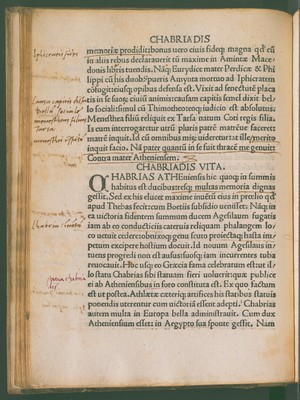 CHABRIADIS
memoriæ prodidit: bonus uero ciuis fideq; magna qđ cū
in aliis rebus declarauerit tū maxime in Amintæ Mace
donis libris tuendis. Náq; Eurydice mater Perdicæ & Phi
lippi cū his duob⁹ pueris Amynta mortuo ad Iphicratem
cōfugit eiusq; opibus defensa est. Vixit ad senectutē placa
tis in se suorꝝ ciuiū animis: causam capitis semel dixit bel
lo sociali: simul cū Thimotheo eoq; iudicio est absolutus:
Menesthea filiū reliquit ex Tarsa natum Coti regis filia.
Is cum interrogaretur utrū pluris patrē matrēue faceret
matrē inquit. Id cū omnibus mirū uideretur: at ille merito
inquit facio. Ná pater quantū in se fuit thracē me genuit:
Contra mater Atheniensem.
CHABRIADIS VITA.
CHABRIAS ATHEniensis hic quoq; in summis
habitus est ducibus: resq; multas memoria dignas
gessit. Sed ex his elucet maxime inuētū eius in prelio qđ
apud Thebas fecit: cum Boetiis subsidio uenisset: Náq; in
ea uictoria fidentem summum ducem Agesilaum fugatis
iam ab eo conducticiis cateruis reliquam phalangem lo/
co uetuit cedere: obnixoq; genu scuto proiectaq; hasta im/
petum excipere hostium docuit. Id nouum Agesilaus in/
tuens progredi non est ausus: suosq; iam incurrentes tuba
reuocauit. Hoc usq; eo Græcia fama celebratum est: ut il/
lo statu Chabrias sibi statuam fieri uoluerit: quæ publice
ei ab Atheniensibus in foro constituta est. Ex quo factum
est ut postea Athletæ cæteriq; artifices his statibus statuis
ponendis uterentur cum uictoriā essent adepti. Chabrias
autem multa in Europa bella administrauit. Cum dux
Atheniensium esset: in Aegypto sua sponte gessit. Nam